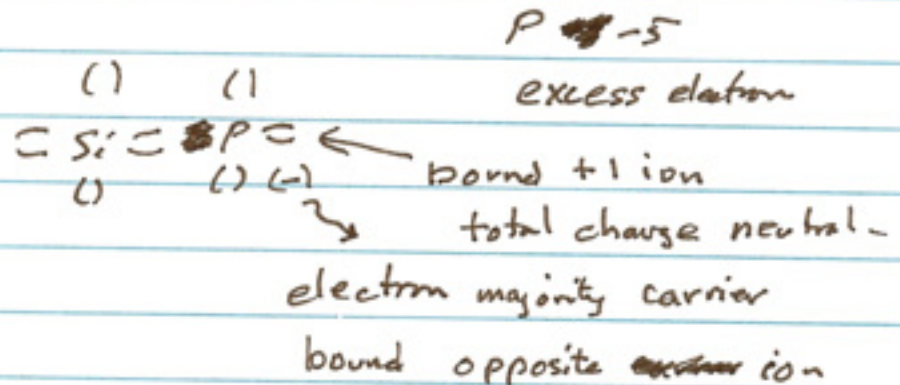 P -5
excess electron
() ()
= Si = P =
() () (-)
bound +1 ion
total charge neutral-
electron majority carrier
bound opposite ion